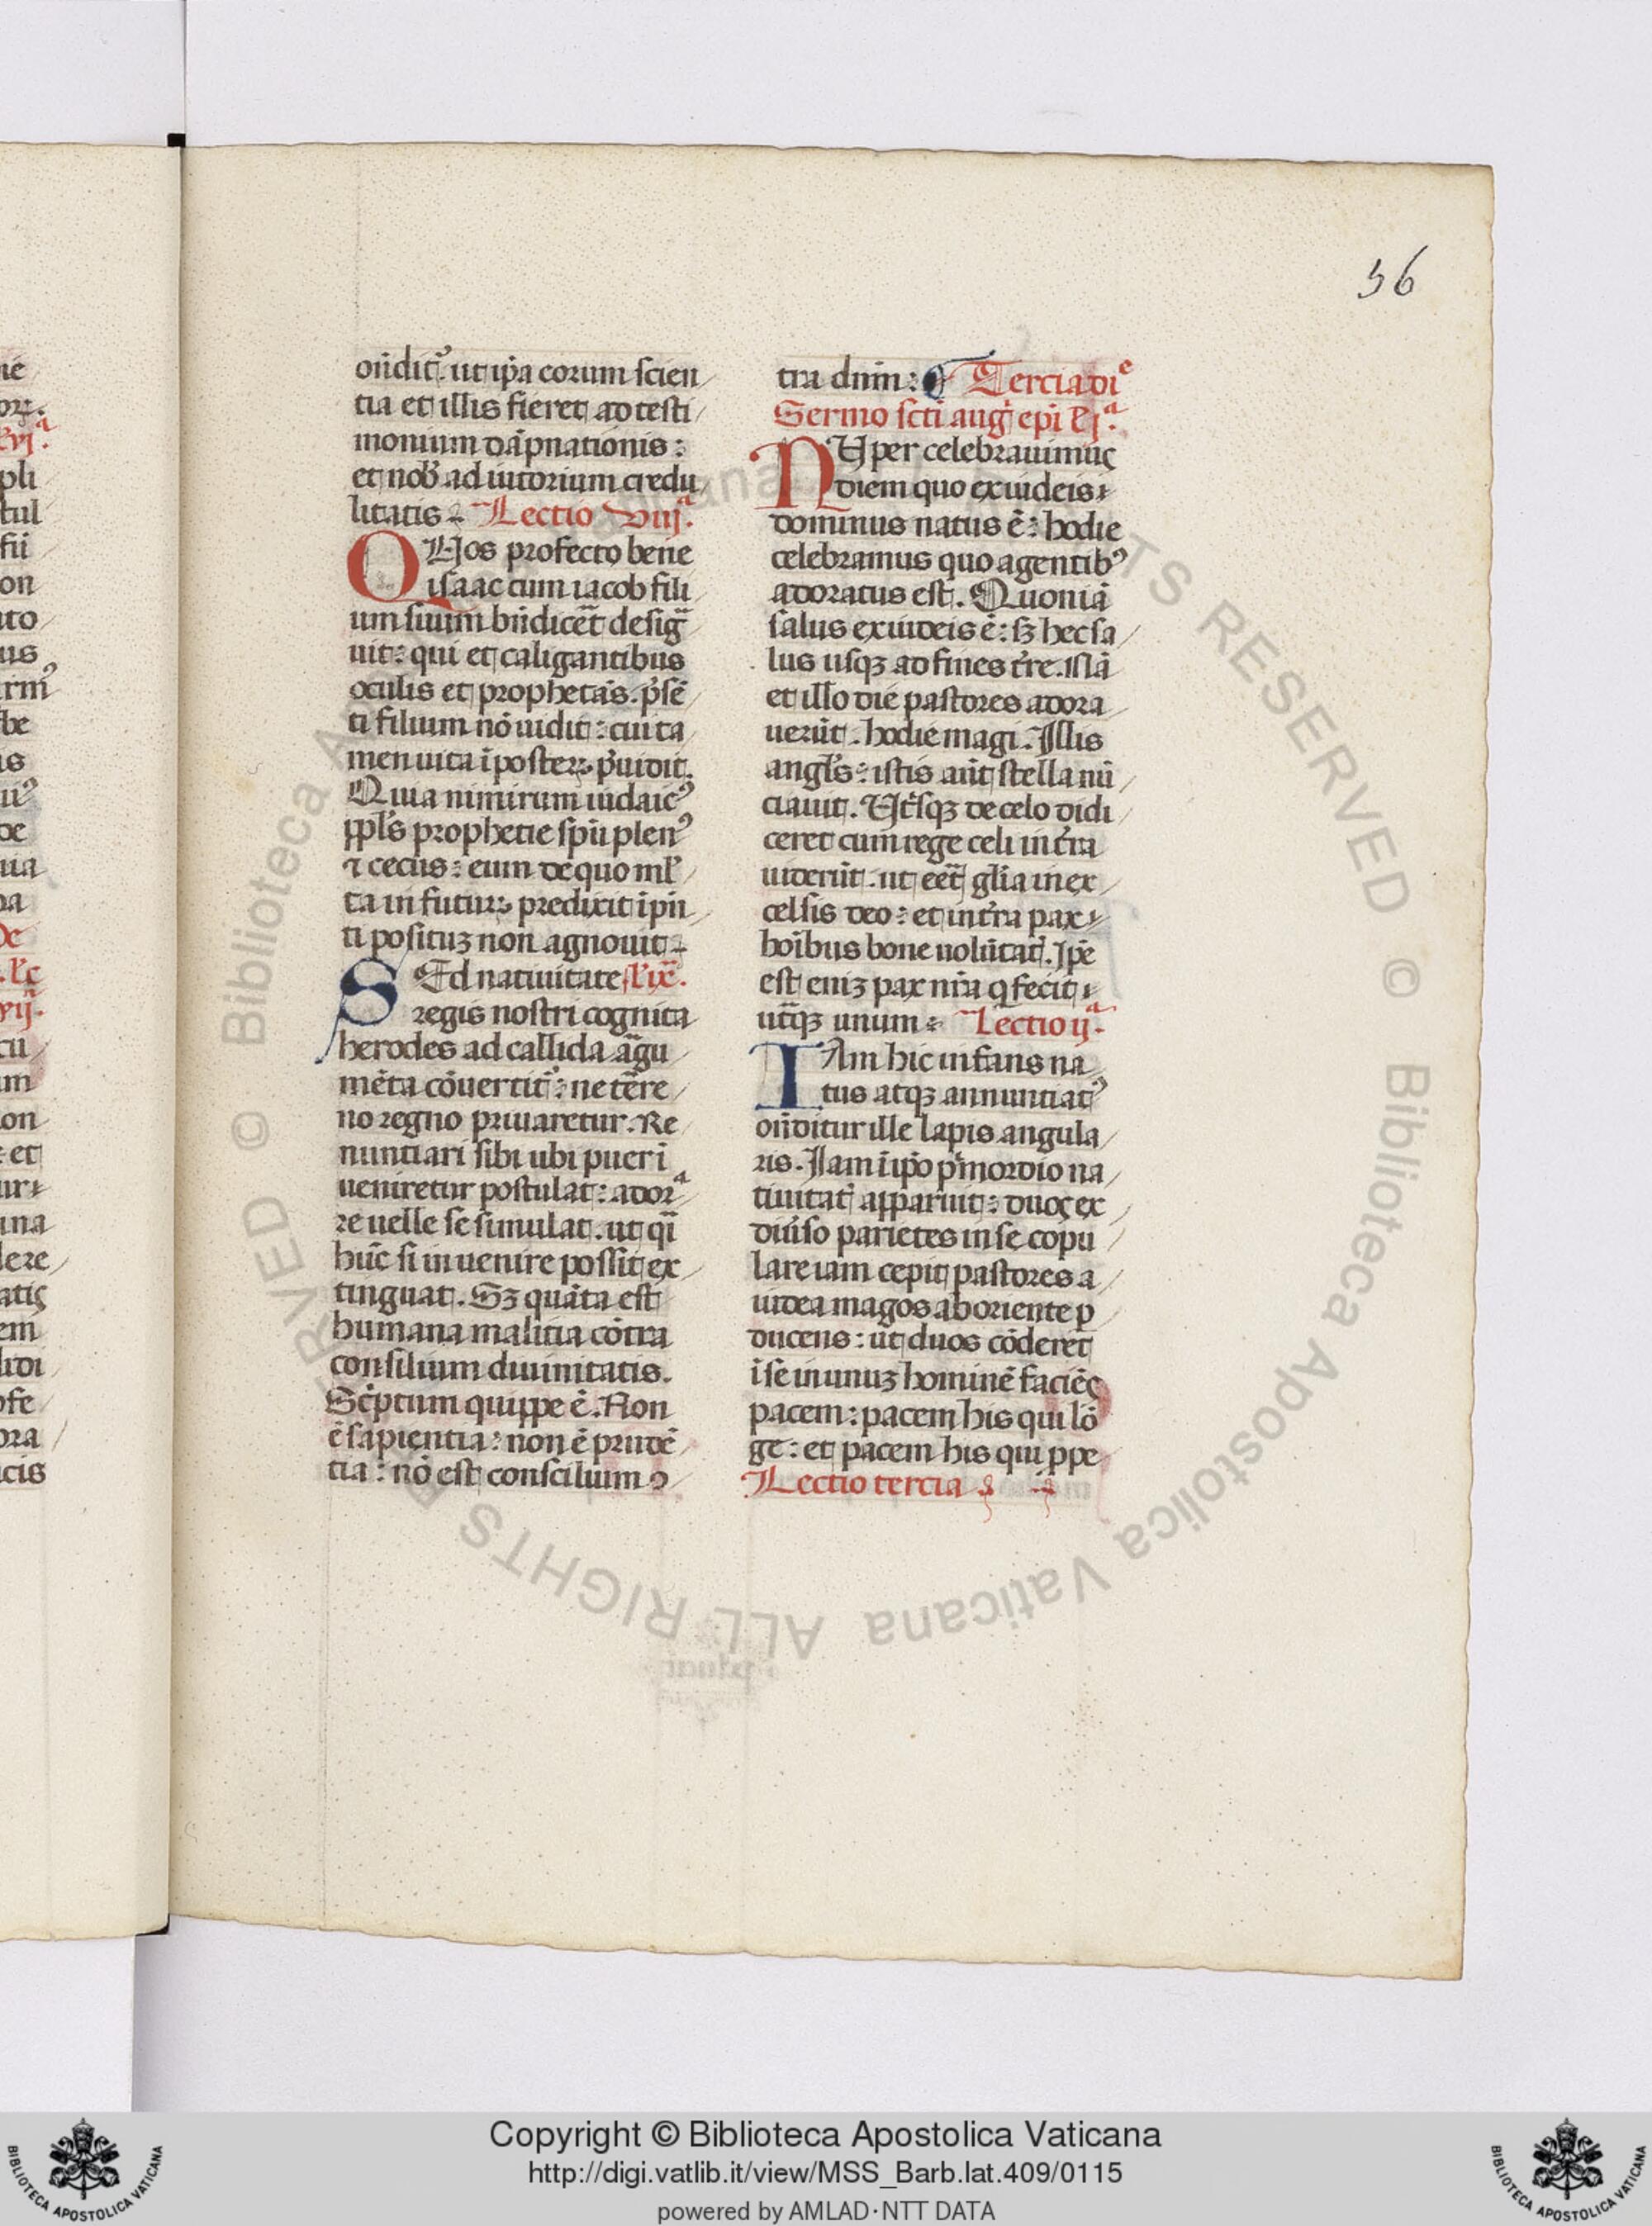 56
on̄dit᷒. ut ip̄a eorum scien
tia et illis fieret ad testi
monium dāpnationis:
et nob᷒ ad iutorium credu
litatis. Lectio viijͣ.
QUos profecto bene
isaac cum iacob fili
um suum bn̄dicēt desiḡ
uit: qui et caligantibus
oculis et prophetās. p̄sē
ti filium nō uidit: cui ta
men uita ī posteꝝ p̄uidit.
Quia nimirum iudaic᷒
ppl̄s prophetie sp̄u plen᷒
⁊ cecus: eum de quo ml̄
ta in futuꝝ predixit ī p̄n
ti posituȝ non agnouit.
SEd natiuitate l̄ ix̄.
regis nostri cognita
herodes ad callida āgu
mēta cōuertit᷒: ne tēre
no regno priuaretur. Re
nuntiari sibi ubi puer ī
ueniretur postulat: adorͣ
re uelle se simulat. ut qͣi
hūc si inuenire possit ex
tinguat. Sȝ quāta est
humana malitia cōtra
consilium diuinitatis.
Sc̄ptum quippe ē. Non
ē sapientia: non ē prudē
tia: nō est conscilium ꝯ
tra dnm̄: Tercia diͤ
Sermo sc̄ti aug᷒ ep̄i l̄ jͣ.
NUper celebrauimus
diem quo ex iudeis
dominus natus ē: hodie
celebramus quo agentib᷒
adoratus est. Quoniā
salus ex iudeis ē: sȝ hec sa
lus usqȝ ad fines t̄re. Nā
et illo die pastores adora
uerūt. hodie magi. Illis
angl̄s: istis aūt stella nū
ciauit. Ut̄sqȝ de celo didi
ceret cum rege celi in t̄ra
uiderūt. ut eēt gl̄ia in ex
celsis deo: et in t̄ra pax
hoībus bone uolūtat᷒. Ip̄e
est eniȝ pax nr̄a q̄ fecit
ut̄qȝ unum. Lectio ijͣ.
IAm hic infans na
tus atqȝ annuntiat᷒
on̄ditur ille lapis angula
ris. Iam ī ip̄o p̄mordio na
tiuitat᷒ apparuit: duos ex
diu̓so parietes in se copu
lare iam cepit pastores a
iudea magos ab oriente ꝑ
ducens: ut duos cōderet
ī se in unuȝ hominē faciēs
pacem: pacem his qui lō
ge: et pacem his qui ꝓpe
Lectio tercia
Copyright © Biblioteca Apostolica Vaticana
http://digi.vatlib.it/view/MSS_Barb.lat.409/0115
powered by AMLAD·NTT DATA